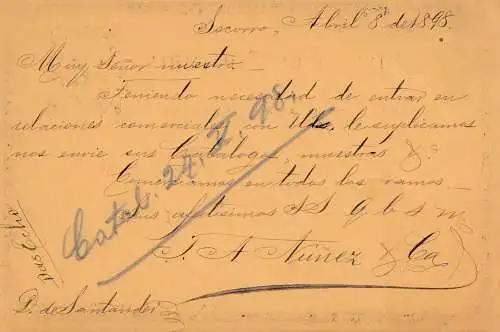 Socorro, Abril 8 de 1898.
Muy Señor nuestro
Teniendo necesidad de entrar en
relaciones comerciales con Uds, le suplicamos
nos envie sus Catálogos, muestras &a.
Comerciamos en todos los ramos.
Sus afetisimos SS. q b s m
J. A Núñez & Ca
D. de Santander
Catal. 24. V. 98.